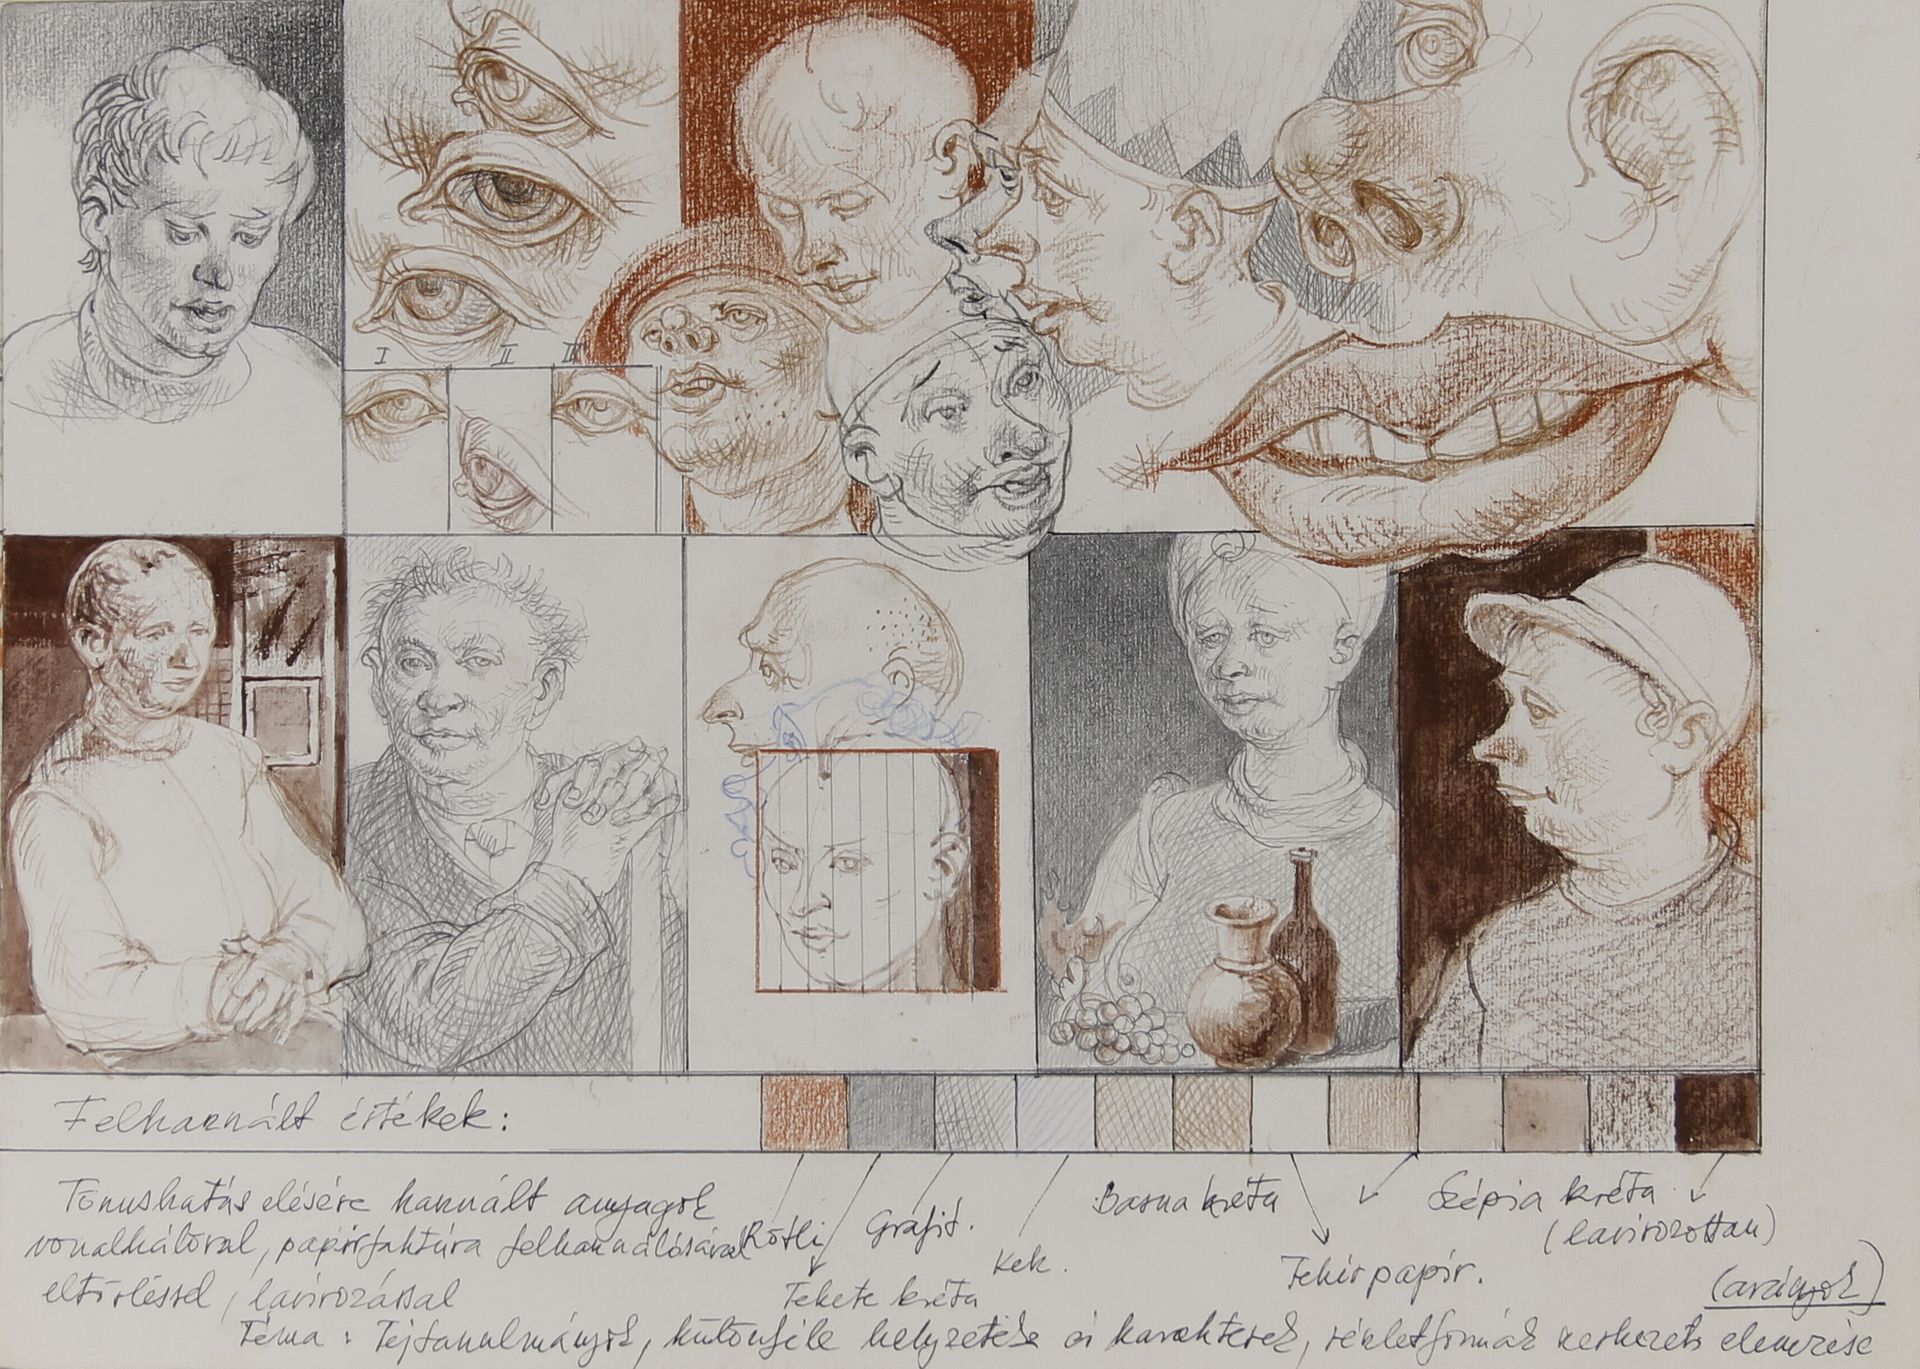 I II III
Felhasznált értékek:
Tónushatás elésére használt anyagok
vonalhálóval, papírfaktúra felhasználásával
eltörléssel, lavírozással
Rötli
Grafit.
Kék.
Barna kréta
Szépia kréta
(lavírozottan)
Fekete kréta
Fehér papír.
(arányok)
Téma: Fejtanulmányok, különféle helyzetek és karakterek, részletformák szerkezeti elemzése